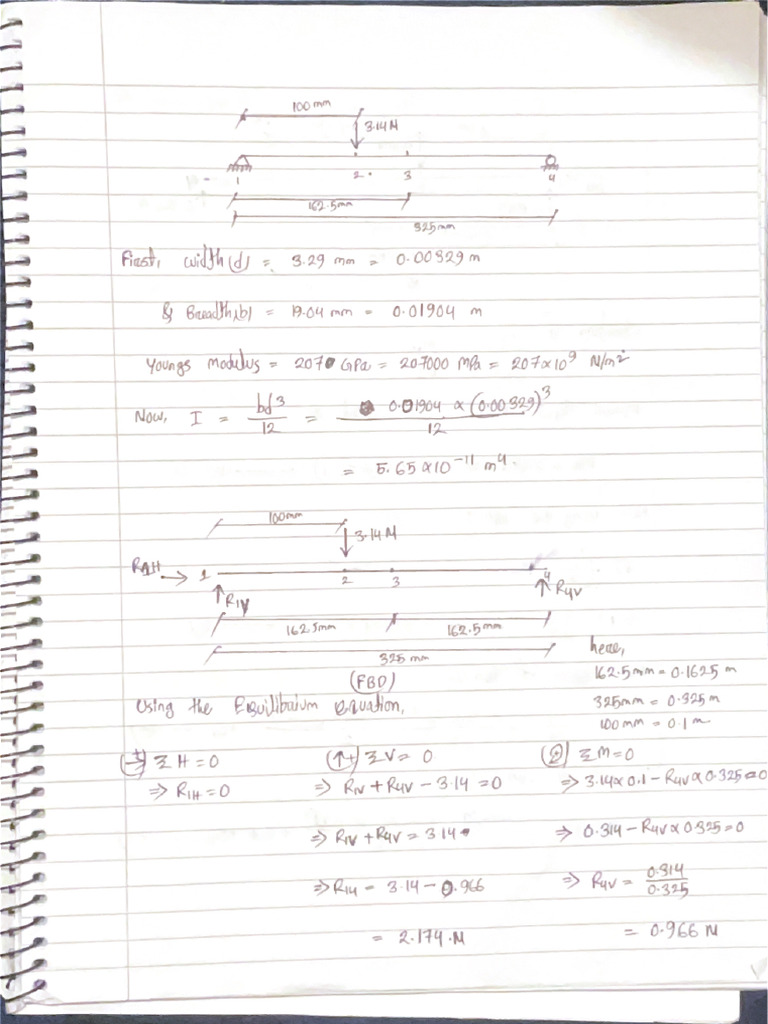 100 mm
3.14 N
1 2 3 4
162.5mm
325mm
First, width (d) = 3.29 mm = 0.00329 m
& Breadth(b) = 19.04 mm = 0.01904 m
Youngs modulus = 207 GPa = 207000 MPa = 207×10⁹ N/m²
Now, I = bd³/12 = 0.01904 × (0.00329)³/12
= 5.65×10⁻¹¹ m⁴.
100mm
3.14 N
R1H → 1 2 3 4
↑R1V ↑R4V
162.5mm 162.5mm
325 mm
here,
(FBD) 162.5mm = 0.1625 m
Using the Equilibrium equation, 325mm = 0.325 m
100 mm = 0.1 m
(→+) ΣH = 0 (↑+) ΣV = 0 ΣM = 0
⇒ R1H = 0 ⇒ R1V + R4V - 3.14 = 0 ⇒ 3.14×0.1 - R4V×0.325 = 0
⇒ R1V + R4V = 3.14 ⇒ 0.314 - R4V×0.325 = 0
⇒ R1V = 3.14 - 0.966 ⇒ R4V = 0.314/0.325
= 2.174 N = 0.966 N